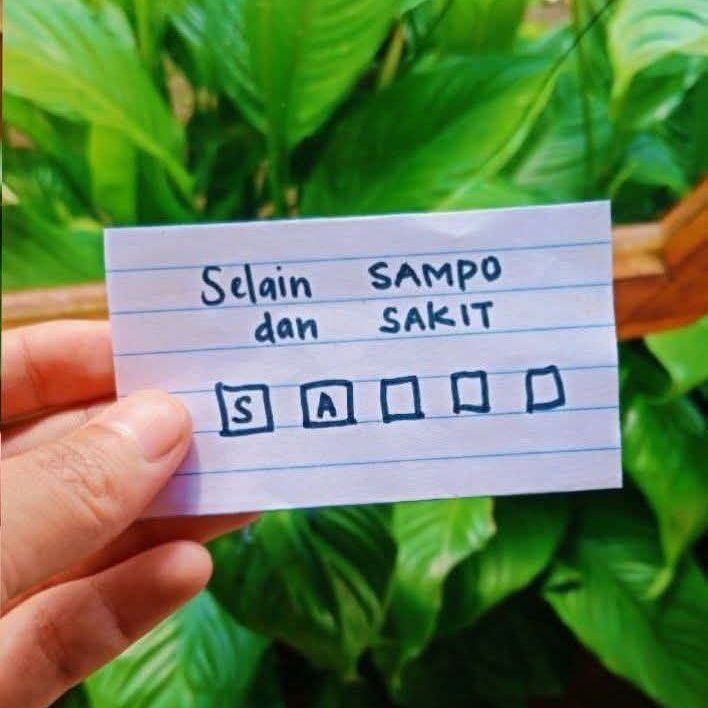 Selain SAMPO
dan SAKIT
S A